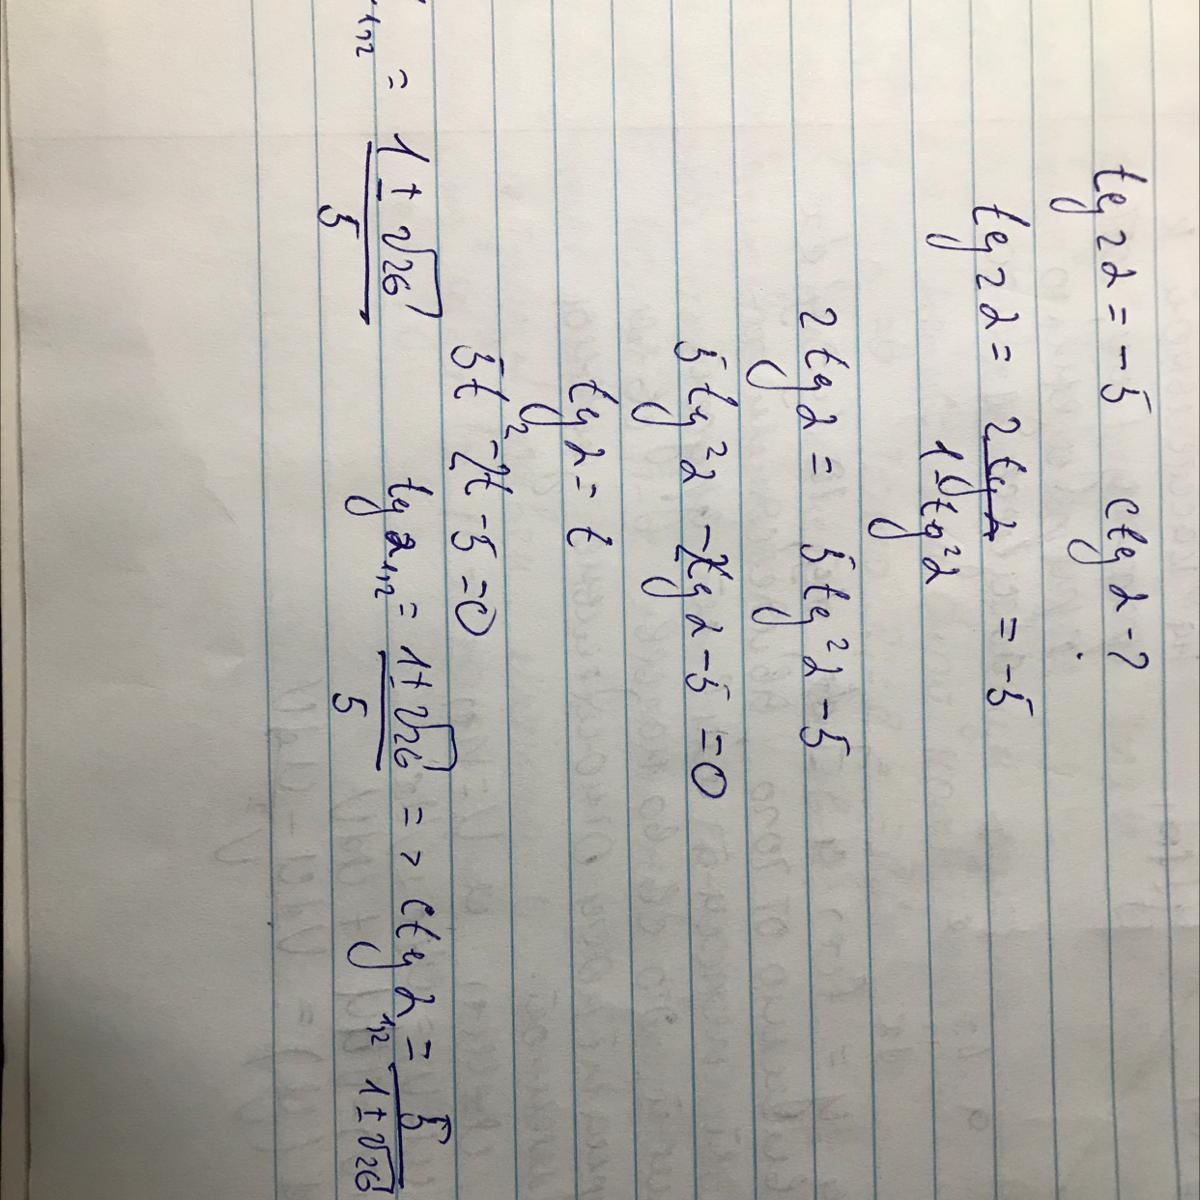 tg 2α = -5 ctg α - ?
tg 2α = 2tg α / 1 - tg²α = -5
2tg α = 5tg²α - 5
5tg²α - 2tg α - 5 = 0
tg α = t
5t² - 2t - 5 = 0
t₁,₂ = 1 ± √26 / 5 tg α₁,₂ = 1 ± √26 / 5 => ctg α₁,₂ = 5 / 1 ± √26